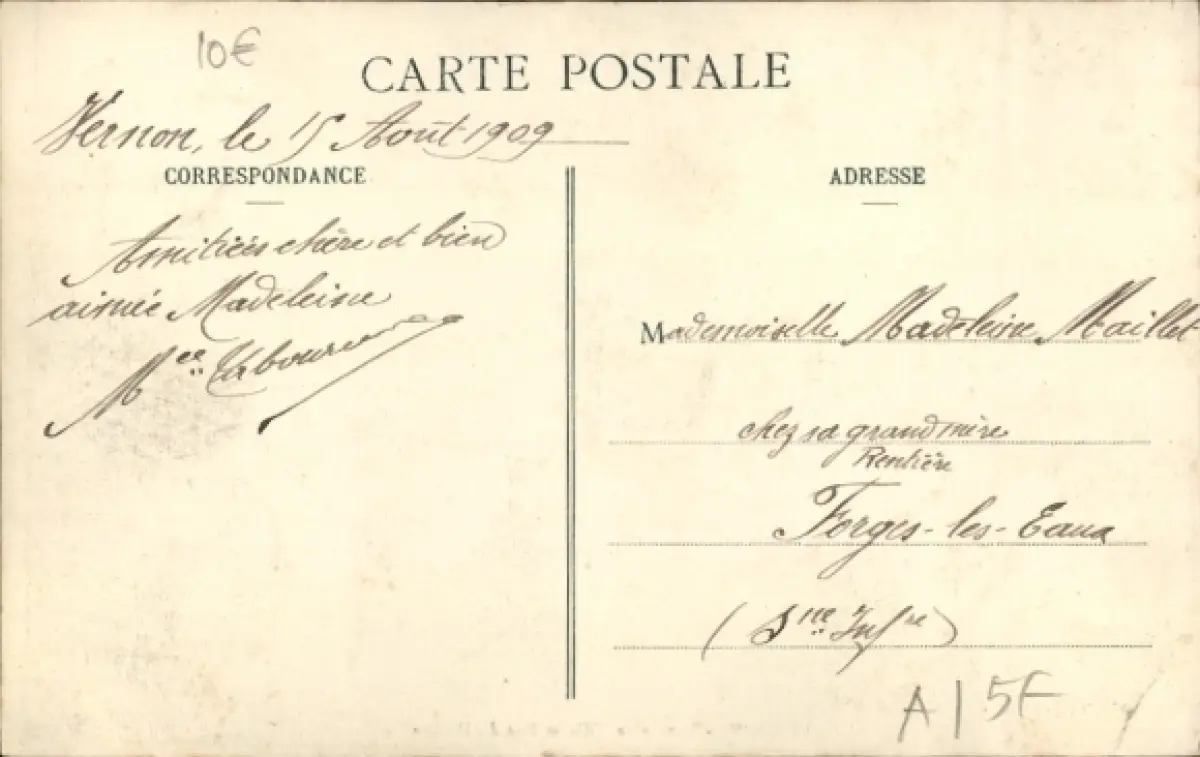 10€
CARTE POSTALE
Vernon, le 15 Août 1909
CORRESPONDANCE
Amitiés chère et bien
aimée Madeleine
Mce
ADRESSE
Mademoiselle Madeleine Maillet
chez sa grand mère
Rentière
Forges-les-Eaux
(Sne Infre)
A | 5F